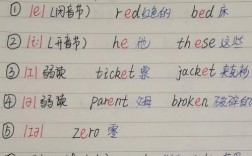 ① |e| (闭音节) red红色的 bed床
② |i:| (开音节) he 他 these 这些
③ |ɪ| 弱读 ticket 票 jacket 夹克衫
④ |ə| 弱读 parent 父母 broken 破碎的
⑤ |ɪə| zero 零